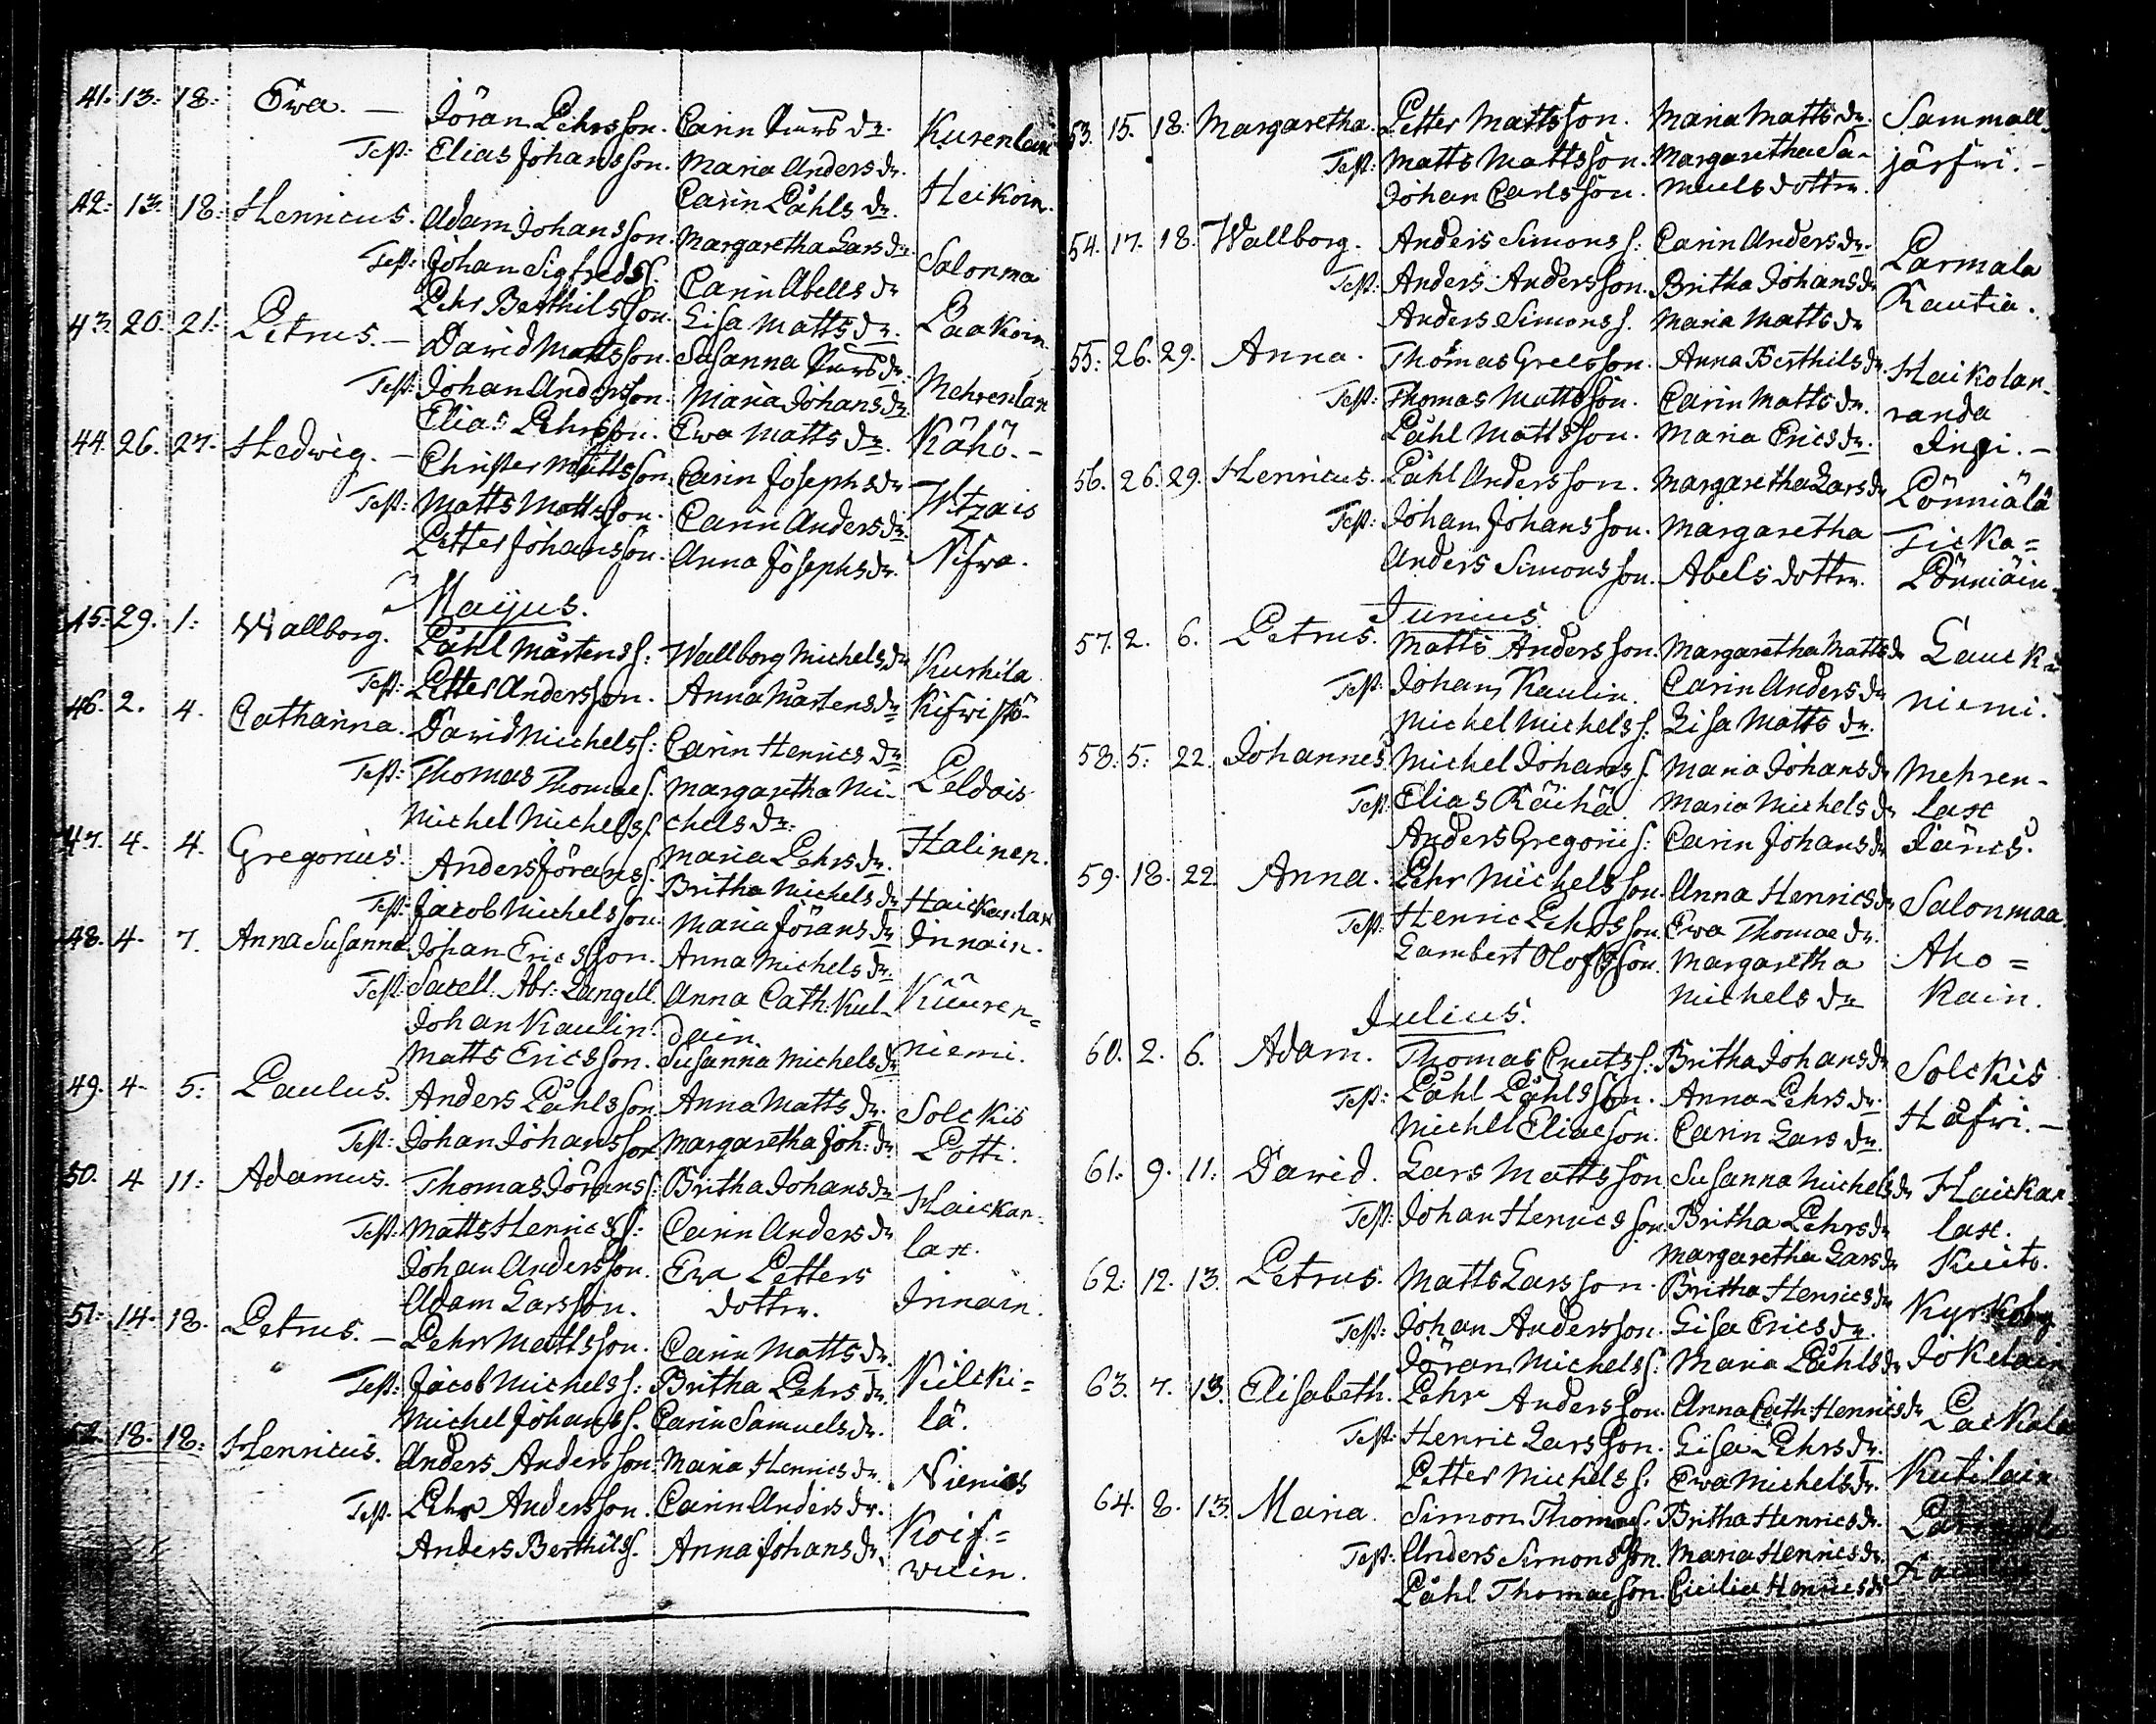 41. 13. 18: Ewa. — Jöran Pehrsson. Carin Lars dr. Kurenlax
Test: Elias Johansson. Maria Anders dr. Heikoin.
Carin Påhls dr.
42. 13. 18: Henricus. Adam Johansson. Margaretha Lars dr. Salonma
Test: Johan Sigfreds s. Carin Abells dr Paakoin.
Pehr Berthilsson. Lisa Matts dr.
43. 20. 21. Petrus. — David Mattsson. Susanna Lars dr. Mehrenlax
Test: Johan Andersson. Maria Johans dr. Kähö. -
Elias Pehrsson. Ewa Matts dr.
44. 26. 27. Hedwig. — Christer Mattsson. Carin Josephs dr Witzais
Test: Matts Mattsson. Carin Anders dr. Nifwa.
Petter Johansson. Anna Josephs dr.
Majus.
45. 29. 1. Wallborg. Påhl Mårtens s: Wallborg Michels dr Kurkila
Test: Petter Andersson. Anna Mårtens dr Kifwistö.
46. 2. 4. Catharina. David Michels s: Carin Henrics dr Peldois
Test: Thomas Thomae s. Margaretha Mi-
Michel Michels s. chels dr.
47. 4. 4. Gregorius. Anders Jörans s. Maria Pehrs dr. Halinen.
Britha Michels dr Haickanlax
Test: Jacob Michelsson. Maria Jörans dr Innain.
48. 4. 7. Anna Susanna Johan Ericsson. Anna Michels dr. Kuuren=
Test: Sacell. Abr: Langell. Anna Cath. Kul- niemi.
Johan Kaulin. dain.
Matts Ericsson. Susanna Michels dr
49. 4. 5: Paulus. Anders Påhlsson. Anna Matts dr. Solckis
Test: Johan Johansson Margaretha Joh: dr Potti.
50. 4 11: Adamus. Thomas Jörans s: Britha Johans dr Haickan-
Test: Matts Henrics s: Carin Anders dr lax.
Johan Andersson. Ewa Petters Innain.
Adam Larsson. dotter.
51. 14. 18. Petrus. — Pehr Mattsson. Carin Matts dr. Kilcki=
Test: Jacob Michels s: Britha Pehrs dr. lä.
Michel Johans s. Carin Samuels dr.
52. 18. 18: Henricus. Anders Andersson. Maria Henrics dr. Niemis
Test. Pehr Andersson. Carin Anders dr. Koif=
Anders Berthils s. Anna Johans dr. wuin.
53. 15. 18: Margaretha. Petter Mattsson. Maria Matts dr. Sammall
Test: Matts Mattsson. Margaretha Sa- järfwi. -
Johan Carlsson. muels dotter.
54. 17. 18. Wallborg. Anders Simons s: Carin Anders dr. Parmala
Test: Anders Andersson. Britha Johans dr Rautia.
Anders Simons s. Maria Matts dr
55. 26. 29. Anna. Thomas Grelsson. Anna Berthils dr. Haikolan-
Test: Thomas Mattsson. Carin Matts dr. randa
Påhl Mattsson. Maria Erics dr. Ingi. —
56. 26. 29. Henricus. Påhl Andersson. Margaretha Lars dr Pönniälä
Test: Johan Johansson. Margaretha Ticka=
Anders Simonsson. Abels dotter. Pönniäin.
Junius.
57. 2. 6. Petrus. Matts Andersson. Margaretha Matts dr Lauck
Test: Johan Kaulin. Carin Anders dr niemi.
Michel Michels s: Lisa Matts dr.
58. 5. 22. Johannes. Michel Johans s. Maria Johans dr Mehren-
Test: Elias Räihä. Maria Michels dr lax
Anders Gregorii s: Carin Johans dr Jänes.
59. 18. 22 Anna. Pehr Michelsson. Anna Henrics dr Salonmaa.
Test: Henric Pehrsson. Ewa Thomae dr. Aho=
Lambert Olofsson. Margaretha kain.
Michels dr
Julius.
60. 2. 6. Adam. Thomas Cnuts s: Britha Johans dr Solckis
Test: Påhl Påhlsson. Anna Pehrs dr. Håfwi. —
Michel Eliaeson. Carin Lars dr.
61. 9. 11: David. Lars Mattsson Susanna Michels dr Haickan
Test: Johan Henricsson. Britha Pehrs dr lax.
Margaretha Lars dr Kuito.
62. 12. 13. Petrus. Matts Larsson. Britha Henrics dr Kyrkoby
Test: Johan Andersson. Lisa Erics dr. Jokelain
Jöran Michels s: Maria Påhls dr
63. 7. 13. Elisabeth. Pehr Andersson. Anna Cath: Henrics dr Packala
Test: Henric Larsson. Lisa Pehrs dr. Kutilain
Petter Michels s: Ewa Michels dr.
64. 8. 13. Maria. Simon Thomae s. Britha Henrics dr.
Test: Anders Simonsson. Maria Henrics dr.
Påhl Thomaeson. Cicilia Henrics dr